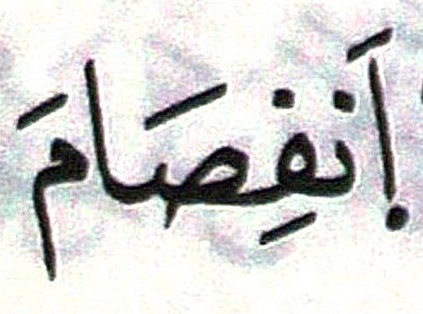 اَ۪نفِصَامَ